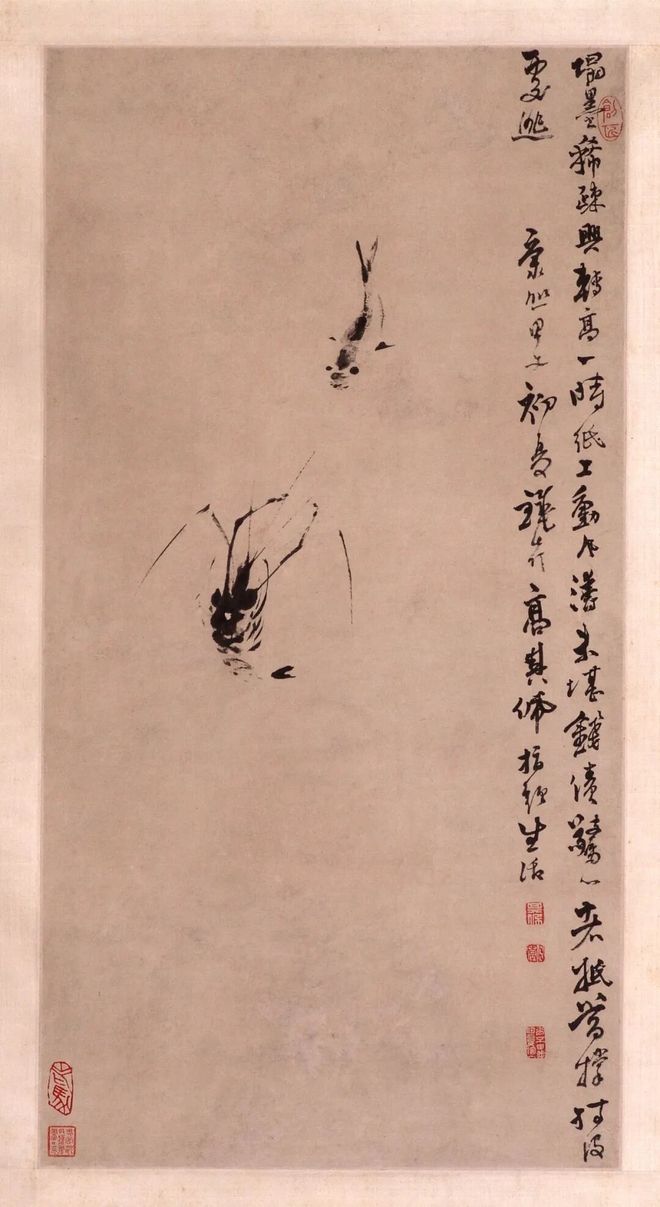 塌墨稀疎興轉高一時紙上動风濤未堪錢債驚心老抵當撑持没
處逃 康熙甲子初夏鐵嶺高其佩指頭生活